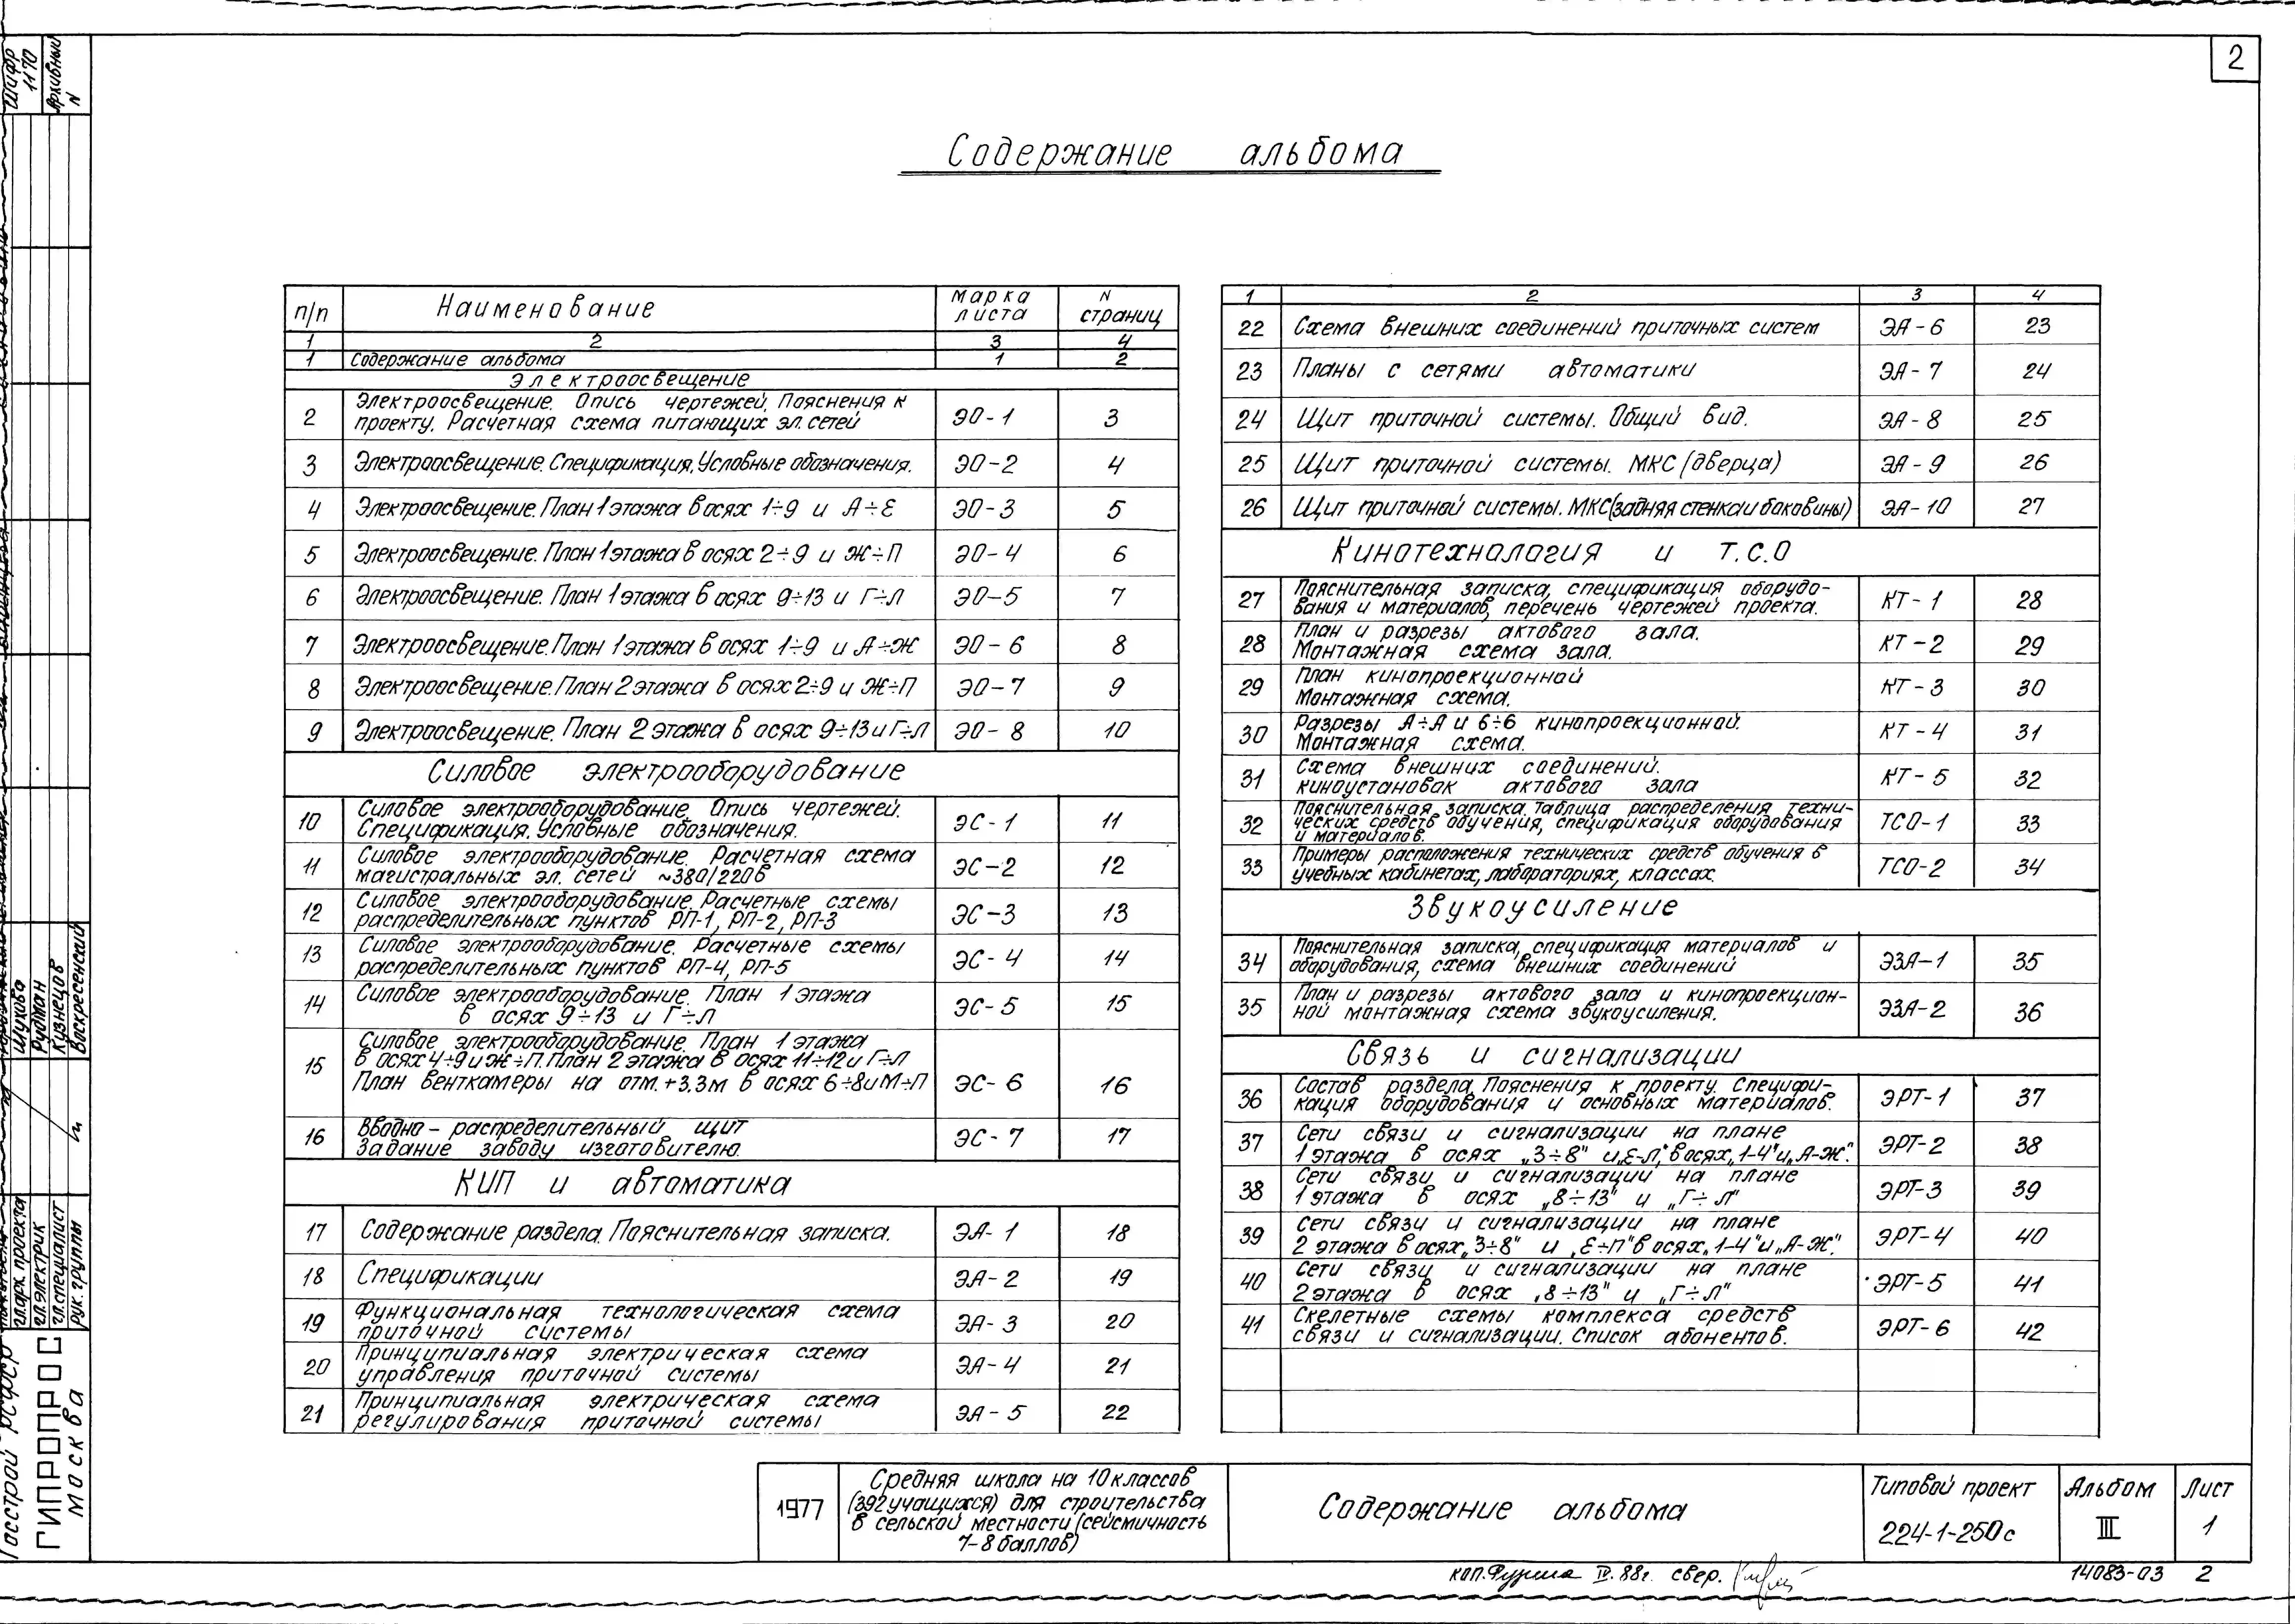 2
Содержание альбома
п/п Наименование Марка листа N страниц
1 2 3 4
1 Содержание альбома 1 2
Электроосвещение
2 Электроосвещение. Опись чертежей. Пояснения к
проекту. Расчетная схема питающих эл. сетей ЭО-1 3
3 Электроосвещение. Спецификация. Условные обозначения. ЭО-2 4
4 Электроосвещение. План 1 этажа в осях 1÷9 и А÷Е ЭО-3 5
5 Электроосвещение. План 1 этажа в осях 2÷9 и Ж÷П ЭО-4 6
6 Электроосвещение. План 1 этажа в осях 9÷13 и Г÷Л ЭО-5 7
7 Электроосвещение. План 1 этажа в осях 1÷9 и А÷Ж ЭО-6 8
8 Электроосвещение. План 2 этажа в осях 2÷9 и Ж÷П ЭО-7 9
9 Электроосвещение. План 2 этажа в осях 9÷13 и Г÷Л ЭО-8 10
Силовое электрооборудование
10 Силовое электрооборудование. Опись чертежей.
Спецификация. Условные обозначения. ЭС-1 11
11 Силовое электрооборудование. Расчетная схема
магистральных эл. сетей ~380/220в ЭС-2 12
12 Силовое электрооборудование. Расчетные схемы
распределительных пунктов РП-1, РП-2, РП-3 ЭС-3 13
13 Силовое электрооборудование. Расчетные схемы
распределительных пунктов РП-4, РП-5 ЭС-4 14
14 Силовое электрооборудование. План 1 этажа
в осях 9÷13 и Г÷Л ЭС-5 15
15 Силовое электрооборудование. План 1 этажа
в осях 4÷9 и Ж÷П. План 2 этажа в осях 11÷12 и Г÷Л
План венткамеры на отм. +3,3м в осях 6÷8 и М÷П ЭС-6 16
16 Вводно-распределительный щит
Задание заводу изготовителю. ЭС-7 17
КИП и автоматика
17 Содержание раздела. Пояснительная записка. ЭА-1 18
18 Спецификации ЭА-2 19
19 Функциональная технологическая схема
приточной системы ЭА-3 20
20 Принципиальная электрическая схема
управления приточной системы ЭА-4 21
21 Принципиальная электрическая схема
регулирования приточной системы ЭА-5 22
1 2 3 4
22 Схема внешних соединений приточных систем ЭА-6 23
23 Планы с сетями автоматики ЭА-7 24
24 Щит приточной системы. Общий вид. ЭА-8 25
25 Щит приточной системы. МКС (дверца) ЭА-9 26
26 Щит приточной системы. МКС (задняя стенка и боковины) ЭА-10 27
Кинотехнология и т.с.о
27 Пояснительная записка, спецификация оборудо-
вания и материалов, перечень чертежей проекта. КТ-1 28
28 План и разрезы актового зала.
Монтажная схема зала. КТ-2 29
29 План кинопроекционной
Монтажная схема. КТ-3 30
30 Разрезы А÷А и б÷б кинопроекционной.
Монтажная схема. КТ-4 31
31 Схема внешних соединений.
киноустановок актового зала КТ-5 32
32 Пояснительная записка. Таблица распределения техни-
ческих средств обучения, спецификация оборудования
и материалов. ТСО-1 33
33 Примеры расположения технических средств обучения в
учебных кабинетах, лабораториях, классах. ТСО-2 34
Звукоусиление
34 Пояснительная записка, спецификация материалов и
оборудования, схема внешних соединений ЭЗА-1 35
35 План и разрезы актового зала и кинопроекцион-
ной монтажная схема звукоусиления. ЭЗА-2 36
Связь и сигнализации
36 Состав раздела. Пояснения к проекту. Специфи-
кация оборудования и основных материалов. ЭРТ-1 37
37 Сети связи и сигнализации на плане
1 этажа в осях „3÷8" и „Е-Л", в осях „1-4" и „А-Ж". ЭРТ-2 38
38 Сети связи и сигнализации на плане
1 этажа в осях „8÷13" и „Г÷Л" ЭРТ-3 39
39 Сети связи и сигнализации на плане
2 этажа в осях „3÷8" и „Е÷П" в осях „1-4" и „А-Ж". ЭРТ-4 40
40 Сети связи и сигнализации на плане
2 этажа в осях „8÷13" и „Г÷Л" ЭРТ-5 41
41 Скелетные схемы комплекса средств
связи и сигнализации. Список абонентов. ЭРТ-6 42
1977
Средняя школа на 10 классов
(392 учащихся) для строительства
в сельской местности (сейсмичность
7-8 баллов)
Содержание альбома
Типовой проект
224-1-250с
Альбом
III
Лист
1
коп. IV.88г. свер.
14083-03 2
Шифр
1170
Архивный
N
Шухова
Рудман
Кузнецов
Воскресенский
гл. арх. проекта
гл. электрик
гл. специалист
рук. группы
Госстрой РСФСР
ГИПРОПРОС
Москва